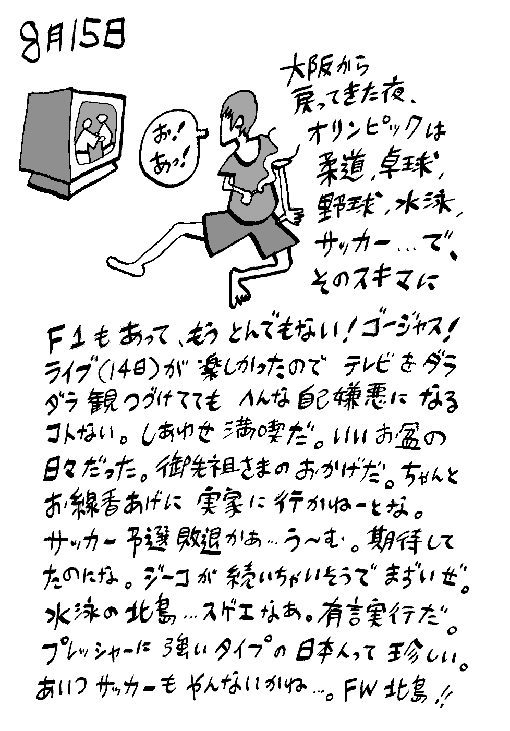 8月15日
お!
あっ!
大阪から
戻ってきた夜、
オリンピックは
柔道、卓球、
野球、水泳、
サッカー…で、
そのスキマに
F1もあって、もうとんでもない!ゴージャス!
ライブ(14日)が楽しかったので テレビをダラ
ダラ観つづけてても へんな自己嫌悪になる
コトない。しあわせ満喫だ。いいお盆の
日々だった。御先祖さまのおかげだ。ちゃんと
お線香あげに実家に行かねーとな。
サッカー予選敗退かあ…う〜む。期待して
たのにな。ジーコが続いちゃいそうでまずいぜ。
水泳の北島…スゲエなあ。有言実行だ。
プレッシャーに強いタイプの日本人って珍しい。
あいつサッカーもやんないかね…。FW北島!!